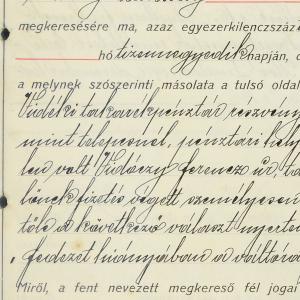 megkeresésére ma, azaz egyezerkilenczszáz
hó tizennegyedik napján, a
a melynek szószerinti másolata a tulsó oldal
Vidéki takarékpénztár részvény
mint telepesnél, pénztári hely
len volt Vidóczy Ferencz úr,
lönek fizetés végett személyesen
tőle a következő választ nyertem
fedezet hiányában a váltóra
Miről, a fent nevezett megkereső fél jogai